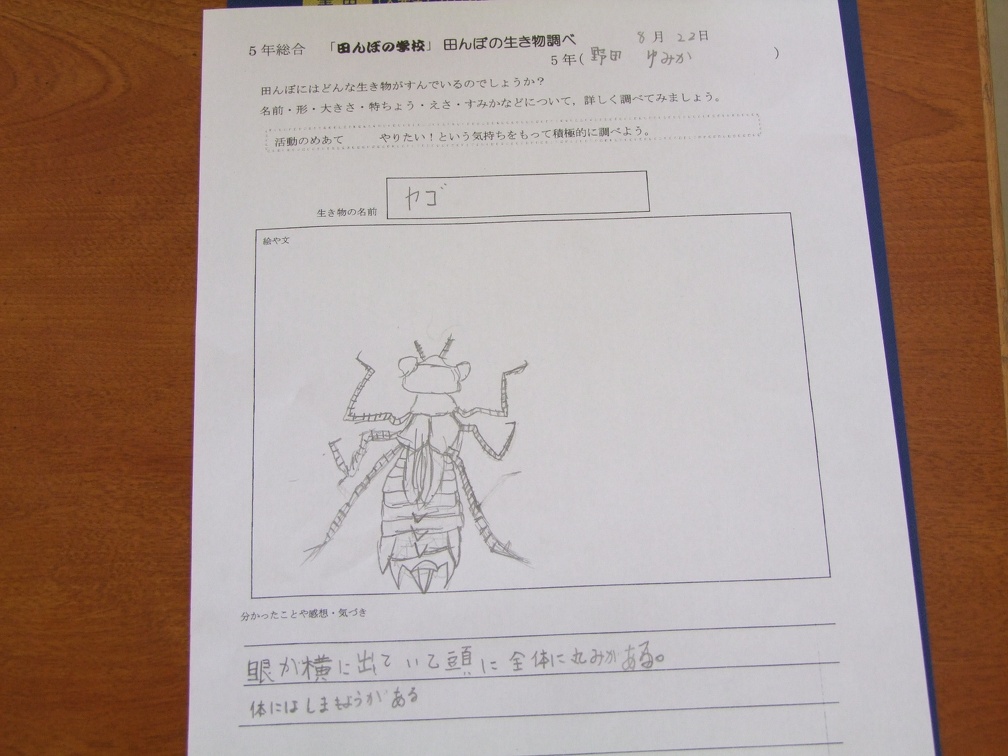 5年総合 「田んぼの学校」田んぼの生き物調べ 8月22日
5年(野田 ゆみか )
田んぼにはどんな生き物がすんでいるのでしょうか？
名前・形・大きさ・特ちょう・えさ・すみかなどについて，詳しく調べてみましょう。
活動のめあて やりたい！という気持ちをもって積極的に調べよう。
生き物の名前 ヤゴ
絵や文
分かったことや感想・気づき
眼が横に出ていて頭に全体に丸みがある。
体にはしまもようがある